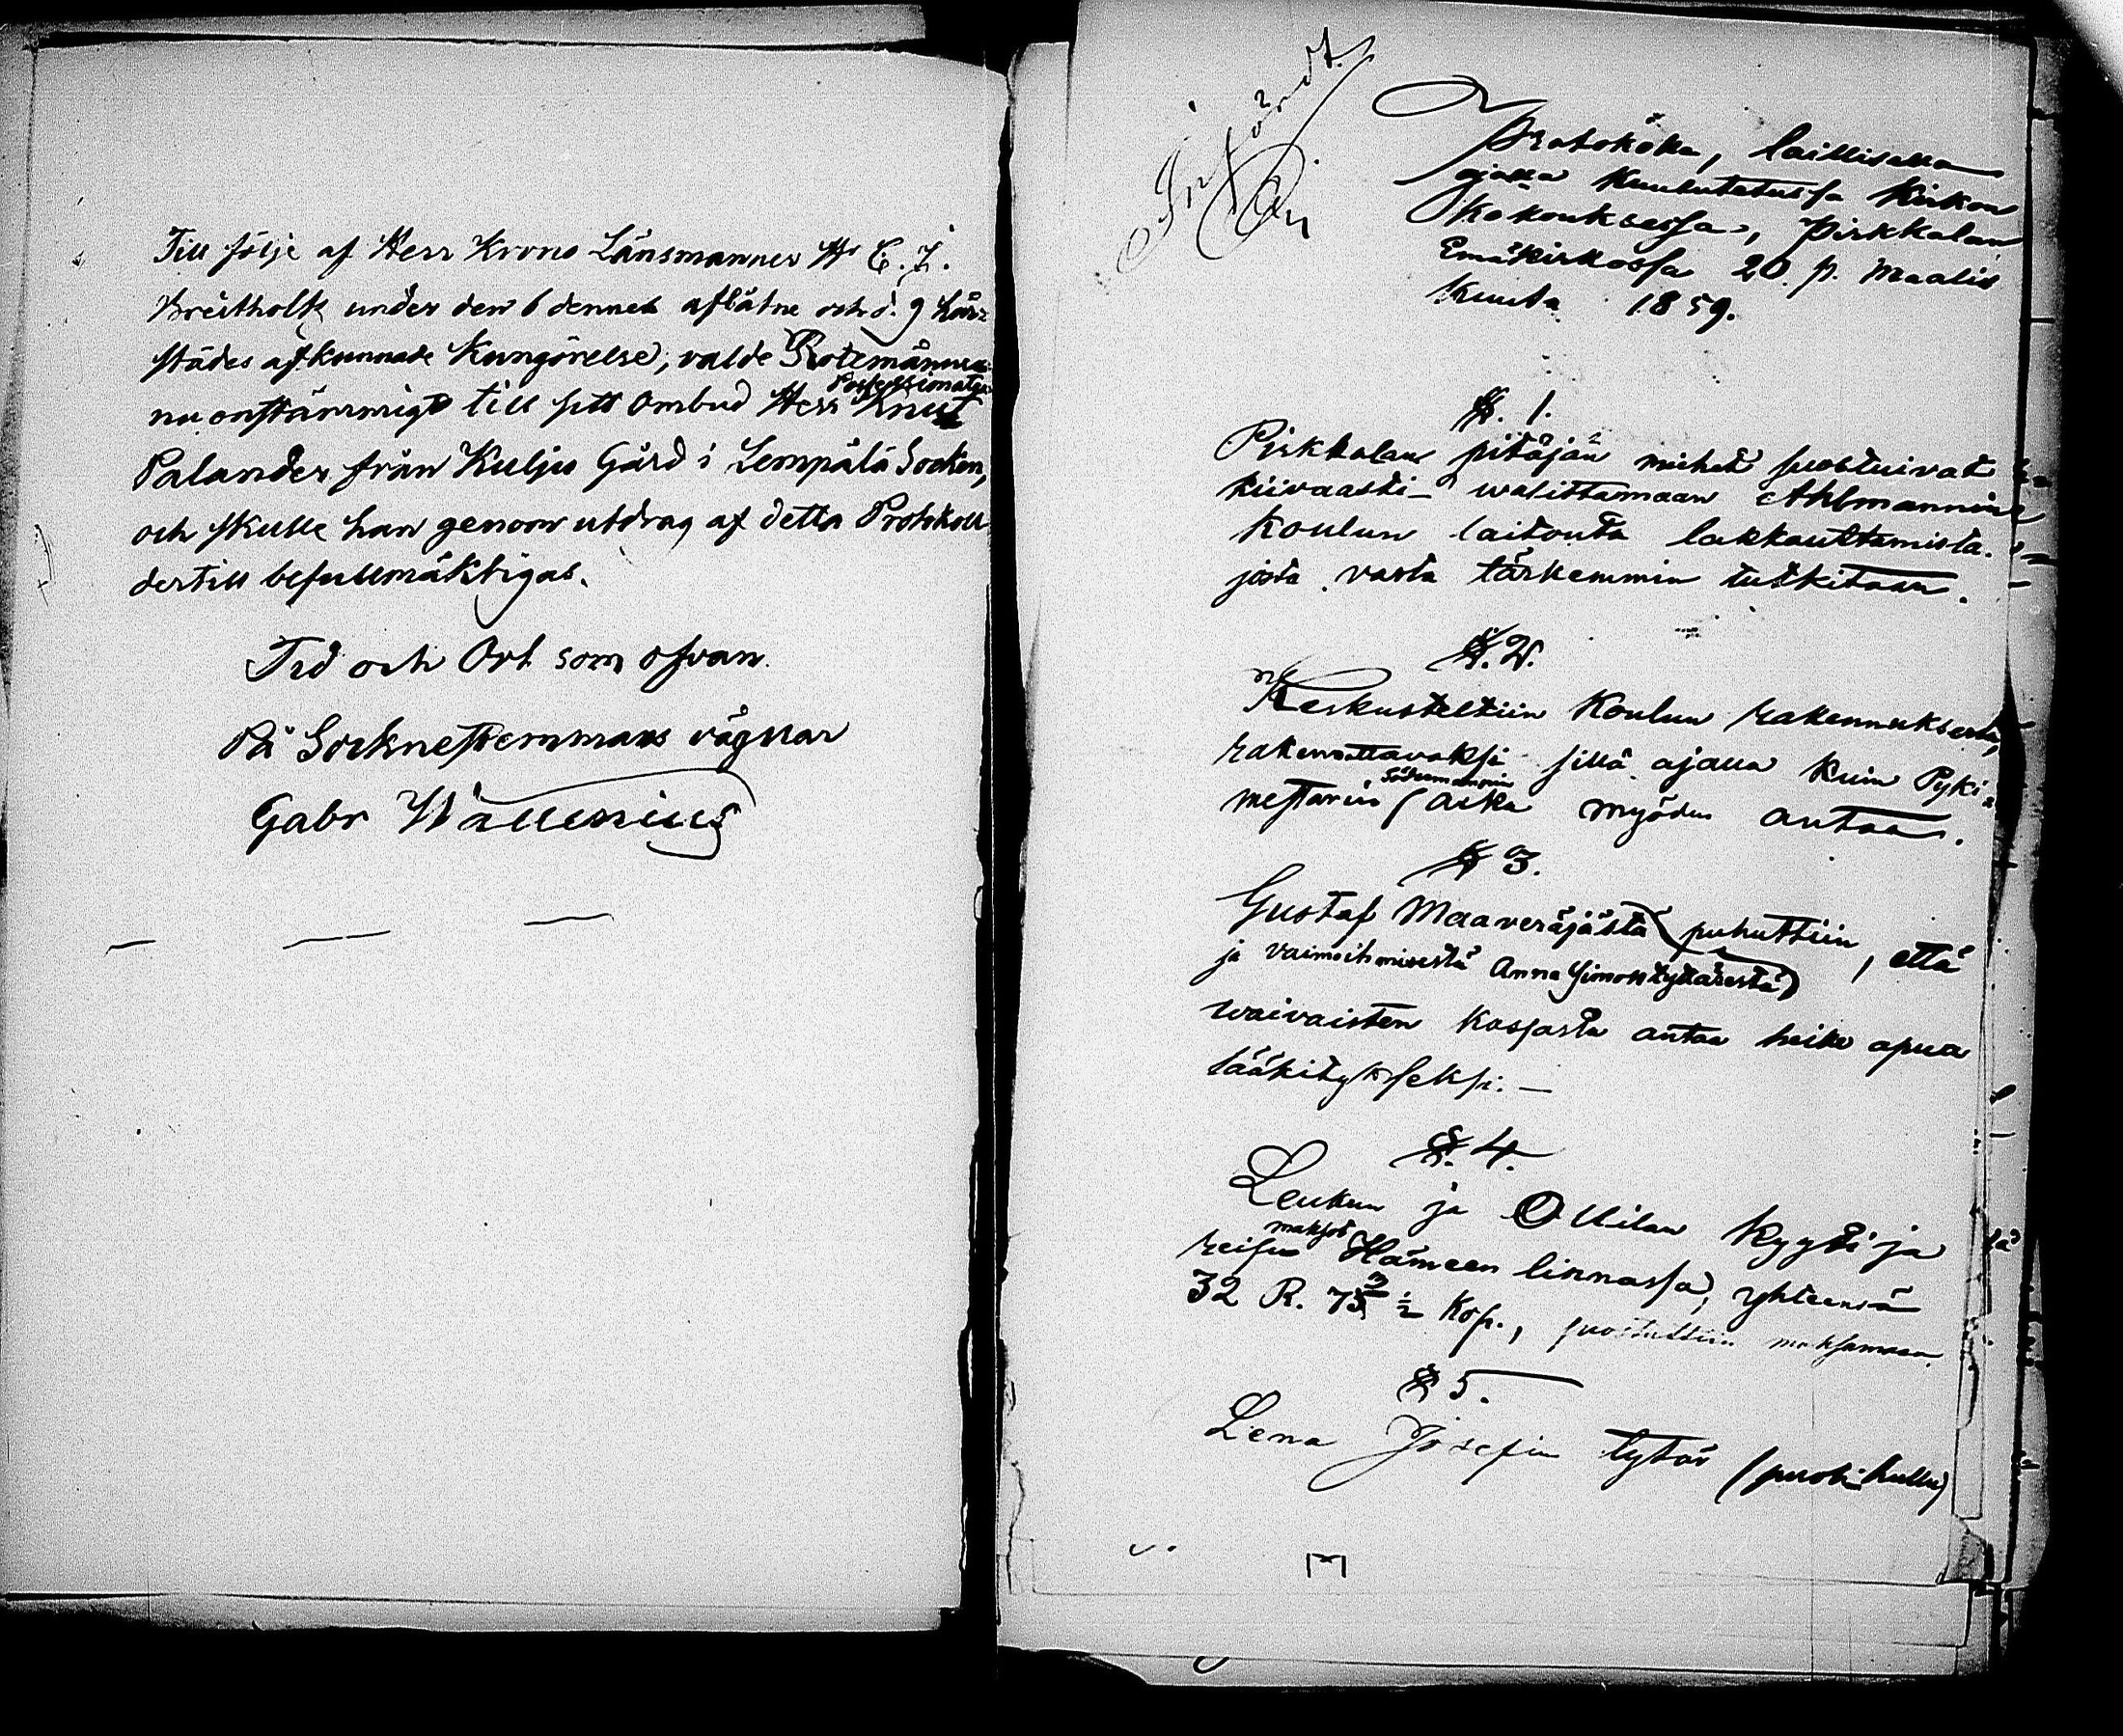 Till följe af Herr Krono Länsmannen Hr C. J.
Breitholtz under den 6 dennes aflåtne och d. 9 här-
städes afkunnade Kungörelse, valde Rotemännen
Possessionaten
nu enstämmigt till sitt Ombud Herr Knut
Palander från Kuljus Gård i Lempälä Socken,
och skulle han genom utdrag af detta Protokoll
dertill befullmäktigas.
Tid och Ort som ofvan.
På Sockne stemmans vägnar
Gabr Wallenius
Infördt.
Protokolla, laillisella
ajalla kuulutetussa Kirkon
Kokouksessa, Pirkkalan
Emäkirkossa 20. p. Maalis
kuuta 1859.
§. 1.
Pirkkalan pitäjän miehet suostuivat
kiivaasti walittamaan Ahlmannin
koulun laitousta lakkauttamista.
josta vasta tärkemmin tutkitaan.
§. 2.
Keskusteltiin Koulun rakennuksesta,
rakennettavaksi sillä ajalla kuin Pyki-
Södermannin
mestarin aika myöden antaa.
§ 3.
Gustaf Maaveräjästä puhuttiin, että
ja vaimoihmisestä Anna Simontyttärestä)
waivaisten kassasta antaa heille apua
lääkitykseksi. —
§. 4.
Leukun ja Ollilan kyyti ja
maksot
reisun Hämeen linnassa, yhteensä
32 R. 73 ½ Kop., suostuttiin maksamaan.
§ 5.
Lena Josefin tytär (puoli hullu)